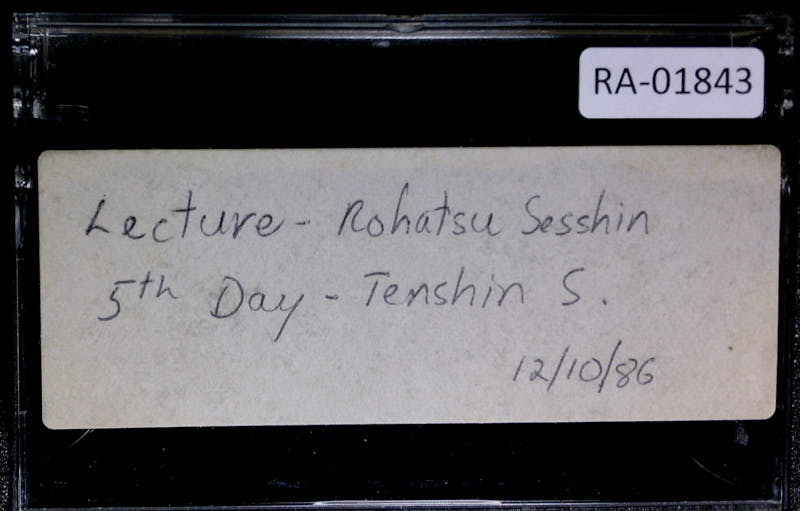 RA-01843
Lecture - Rohatsu Sesshin
5th Day - Tenshin S.
12/10/86